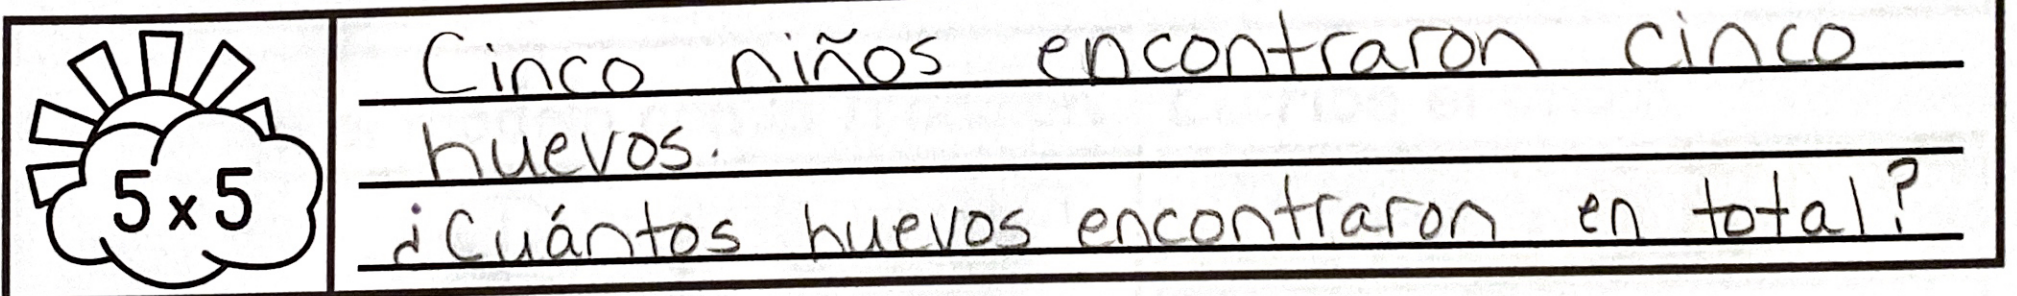 5 x 5
Cinco niños encontraron cinco
huevos.
¿Cuántos huevos encontraron en total?